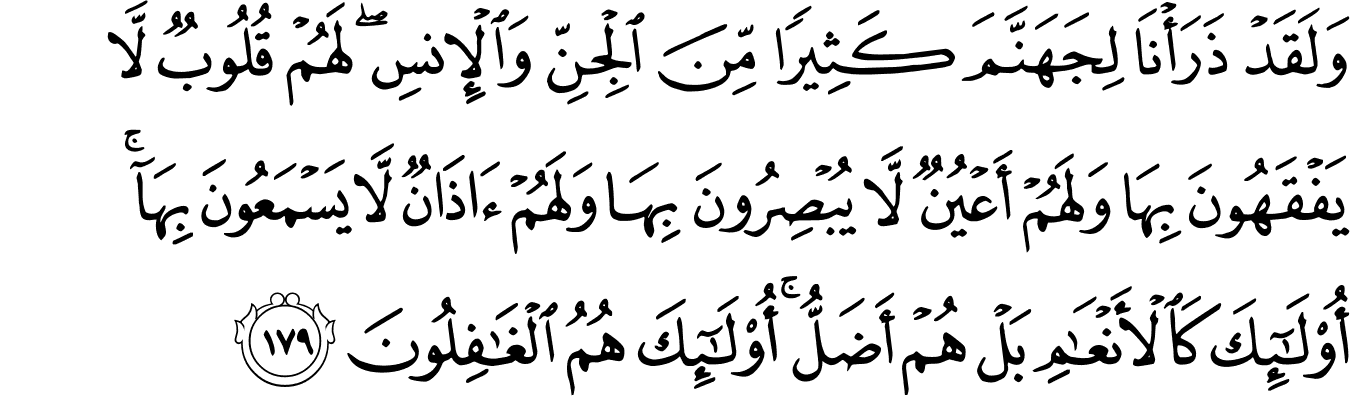 وَلَقَدْ ذَرَأْنَا لِجَهَنَّمَ كَثِيرًا مِّنَ ٱلْجِنِّ وَٱلْإِنسِ ۖ لَهُمْ قُلُوبٌ لَّا
يَفْقَهُونَ بِهَا وَلَهُمْ أَعْيُنٌ لَّا يُبْصِرُونَ بِهَا وَلَهُمْ ءَاذَانٌ لَّا يَسْمَعُونَ بِهَآ ۚ
أُو۟لَـٰٓئِكَ كَٱلْأَنْعَـٰمِ بَلْ هُمْ أَضَلُّ ۚ أُو۟لَـٰٓئِكَ هُمُ ٱلْغَـٰفِلُونَ ١٧٩